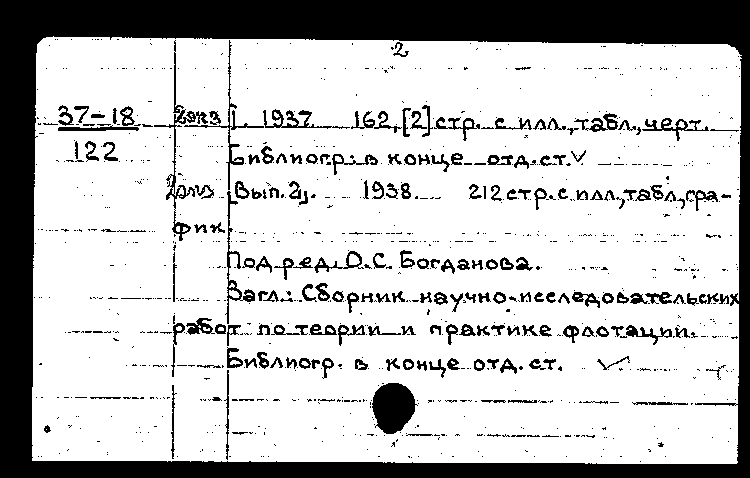 2
37-18 2экз I. 1937. 162,[2]стр. с илл.,табл.,черт.
122 Библиогр. в конце отд.ст.
2экз [Вып.2]. 1938. 212стр.с илл,табл,гра-
фик.
Под ред. О.С. Богданова.
Загл.: Сборник научно-исследовательских
работ по теории и практике флотации.
Библиогр. в конце отд.ст.